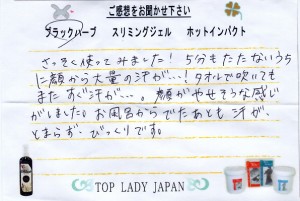 ご感想をお聞かせ下さい
ブラックハーブ　スリミングジェル　ホットインパクト
さっそく使ってみました！5分もたたないうち
に顔から大量の汗が…！タオルで吹いても
またすぐ汗が…。顔がやせそうな感じ
がしました。お風呂からでたあとも汗が、
とまらず、びっくりです。
TOP LADY JAPAN